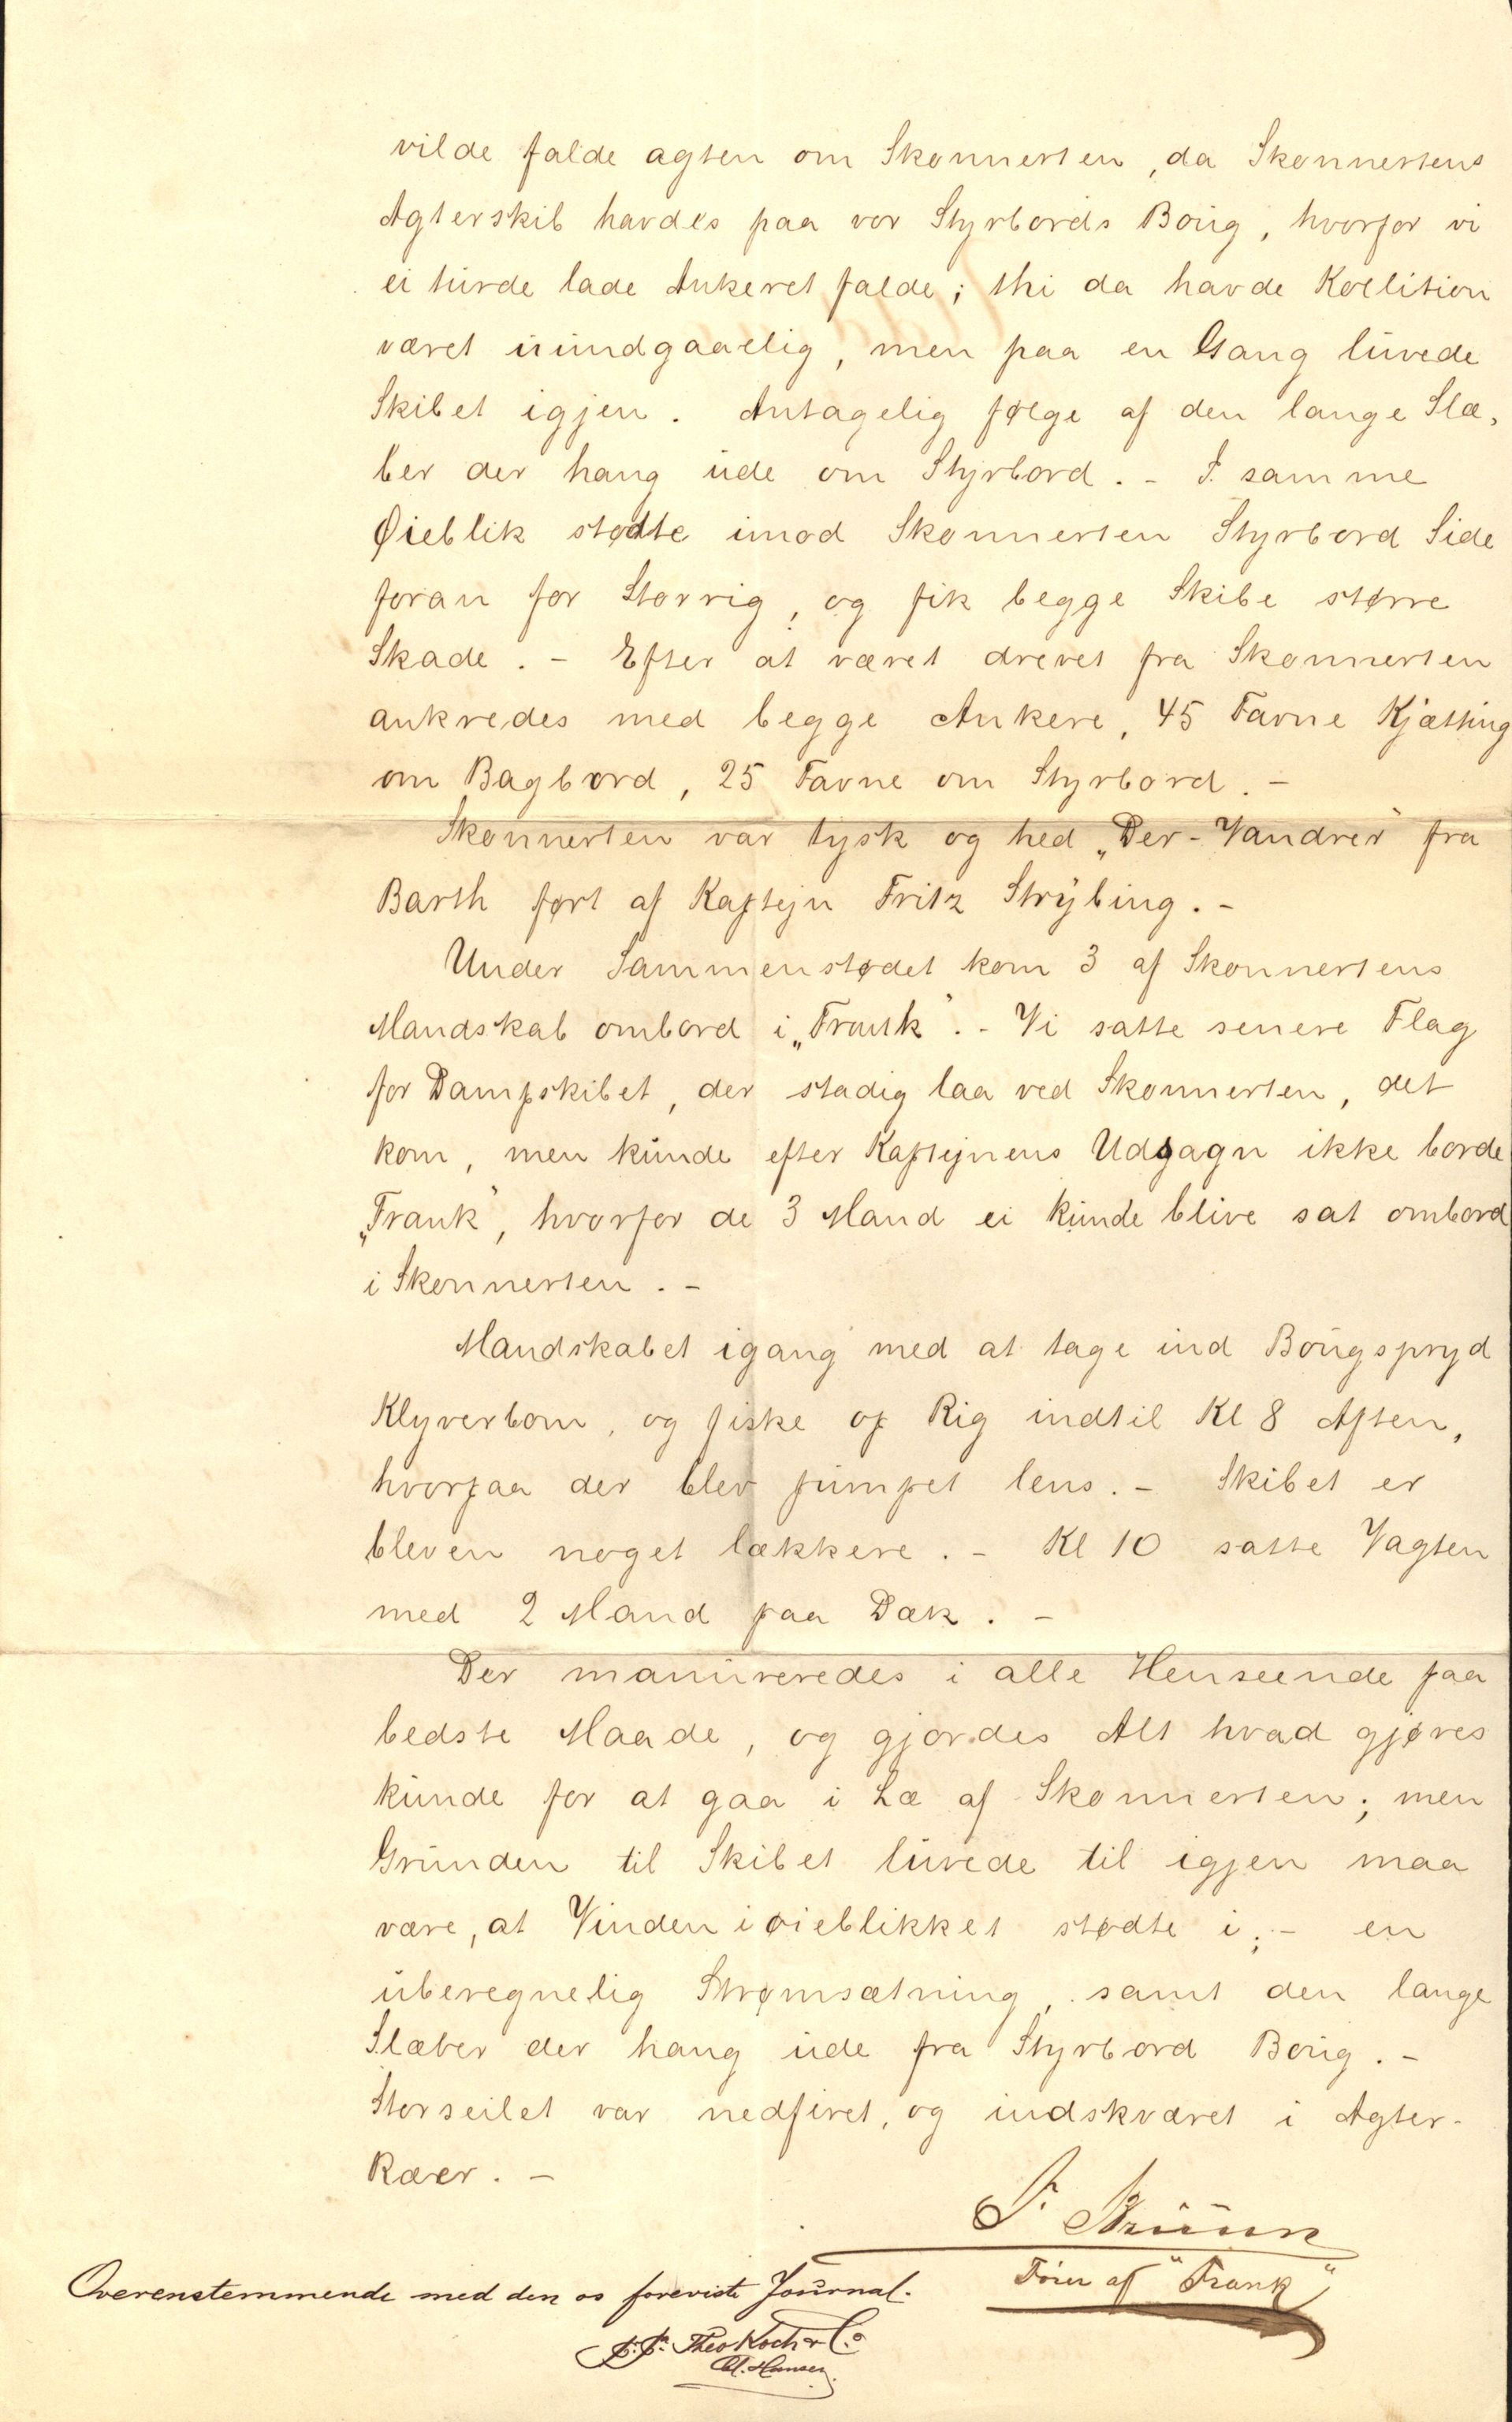 vilde falde agten om Skonnerten, da Skonnertens
Agterskib havdes paa vor Styrbords Boug, hvorfor vi
ei turde lade Ankeret falde; thi da havde Kollition
været uundgaaelig, men paa en Gang luvede
Skibet igjen. Antagelig følge af den lange Slæ-
ber der hang ude om Styrbord. - I samme
Øieblik stødte imod Skonnerten Styrbord Side
foran for Storrig, og fik begge Skibe større
Skade. - Efter at været drevet fra Skonnerten
ankredes med begge Ankere, 45 Favne Kjætting
om Bagbord, 25 Favne om Styrbord. -
Skonnerten var tysk og hed „Der-Vandrer" fra
Barth ført af Kaptejn Fritz Strÿbing. -
Under Sammenstødet kom 3 af Skonnertens
Mandskab ombord i „Frank". - Vi satte senere Flag
for Dampskibet, der stadig laa ved Skonnerten, det
kom, men kunde efter Kaptejnens Udsagn ikke borde
„Frank", hvorfor de 3 Mand ei kunde blive sat ombord
i Skonnerten. -
Mandskabet igang med at tage ind Bougspryd
Klyverbom, og fiske op Rig indtil Kl 8 Aften,
hvorpaa der blev pumpet lens. - Skibet er
bleven noget lækkere. - Kl 10 satte Vagten
med 2 Mand paa Dæk. -
Der manuveredes i alle Henseende paa
bedste Maade, og gjordes Alt hvad gjøres
kunde for at gaa i Læ af Skonnerten; men
Grunden til Skibet luvede til igjen maa
være, at Vinden i øieblikket stødte i; - en
uberegnelig Strømsætning, samt den lange
Slæber der hang ude fra Styrbord Boug. -
Storseilet var nedfiret, og indskværet i Agter-
Ræer. -
Fører af "Frank"
Overenstemmende med den os foreviste Journal.
p.p. Theo Koch & Co
Hansen